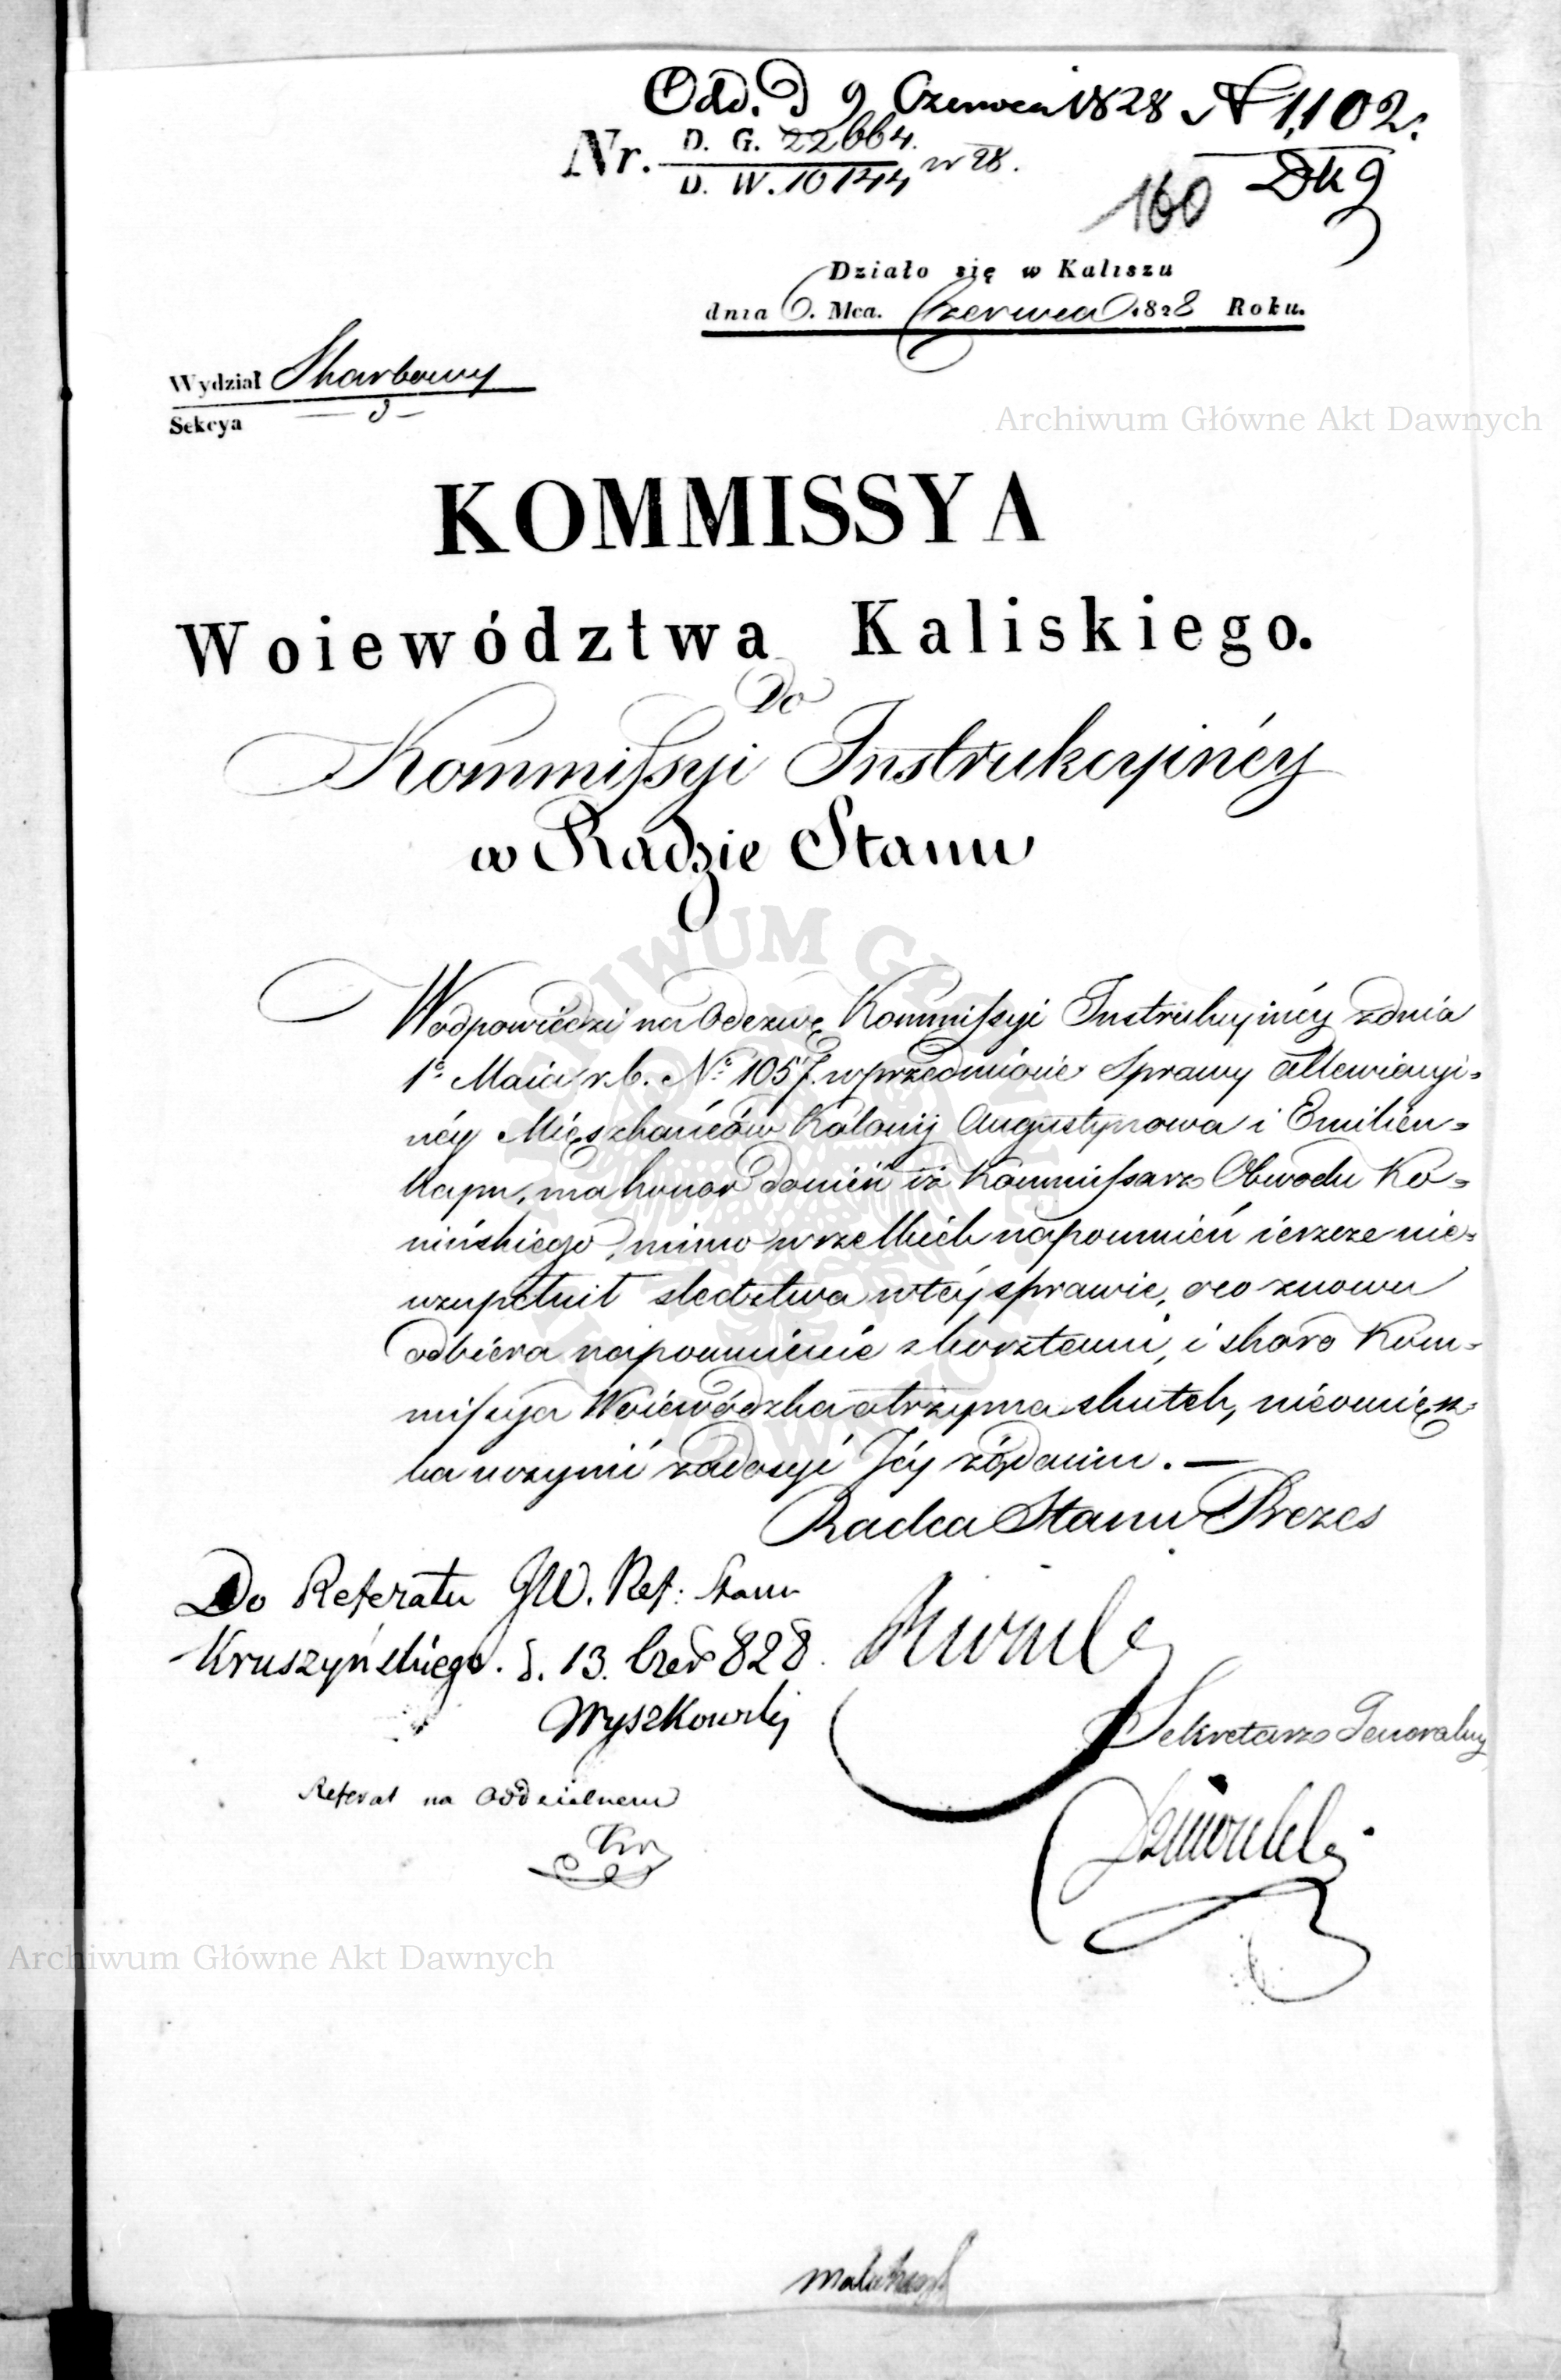 Odd. D 9 Czerwca 1828 N 1,102.
Nr. D. G. 22664. w 28.
D. W. 10144
160 Dk 9
Działo się w Kaliszu
dnia 6. Mca. Czerwca 1828 Roku.
Wydział Skarbowy
Sekcya
Archiwum Główne Akt Dawnych
KOMMISSYA
Woiewództwa Kaliskiego.
Do
Kommissyi Instrukcyinéy
w Radzie Stanu
W odpowiedzi na Odezwę Kommissyi Instrukcyinéy z dnia
1º Maia r. b. Nº 1057. w przedmiocie Sprawy
néy Mieszkańców Kolonij Augustynowa i Emilien=
kapu, ma honor donieść iż Kommissarz Obwodu Ko=
nińskiego, mimo wszelkich napomnień ieszcze nie=
uzupełnił sledztwa w téy sprawie, oco znowu
odbiera napomnienie z kosztami, i skoro Kom=
missya Woiewódzka otrzyma skutek, nieomiesz=
ka uczynić zadosyć Jéy żądaniu. —
Radca Stanu Prezes
Do Referatu JW. Ref: Stanu
Kruszyńskiego. d. 13. Czer 828.
Wyszkowski
Sekretarz Generalny
Referat na oddzielnem
Kr
Archiwum Główne Akt Dawnych